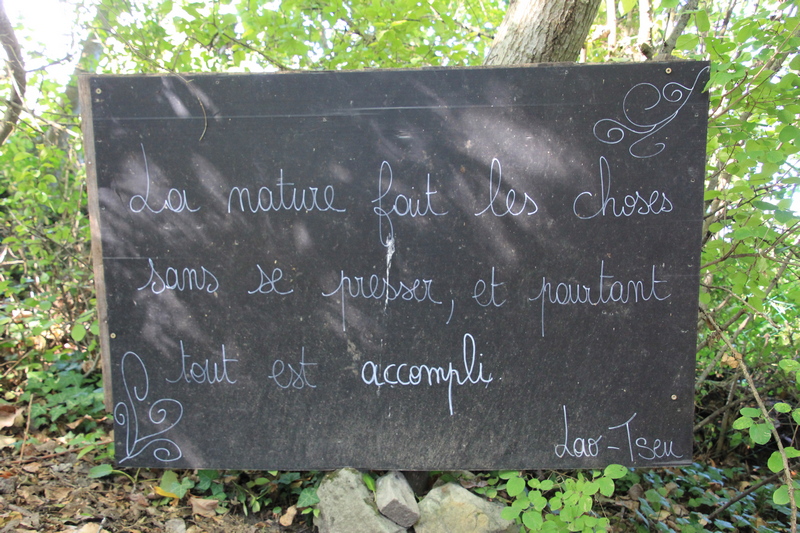 La nature fait les choses
sans se presser, et pourtant
tout est accompli.
Lao-Tseu